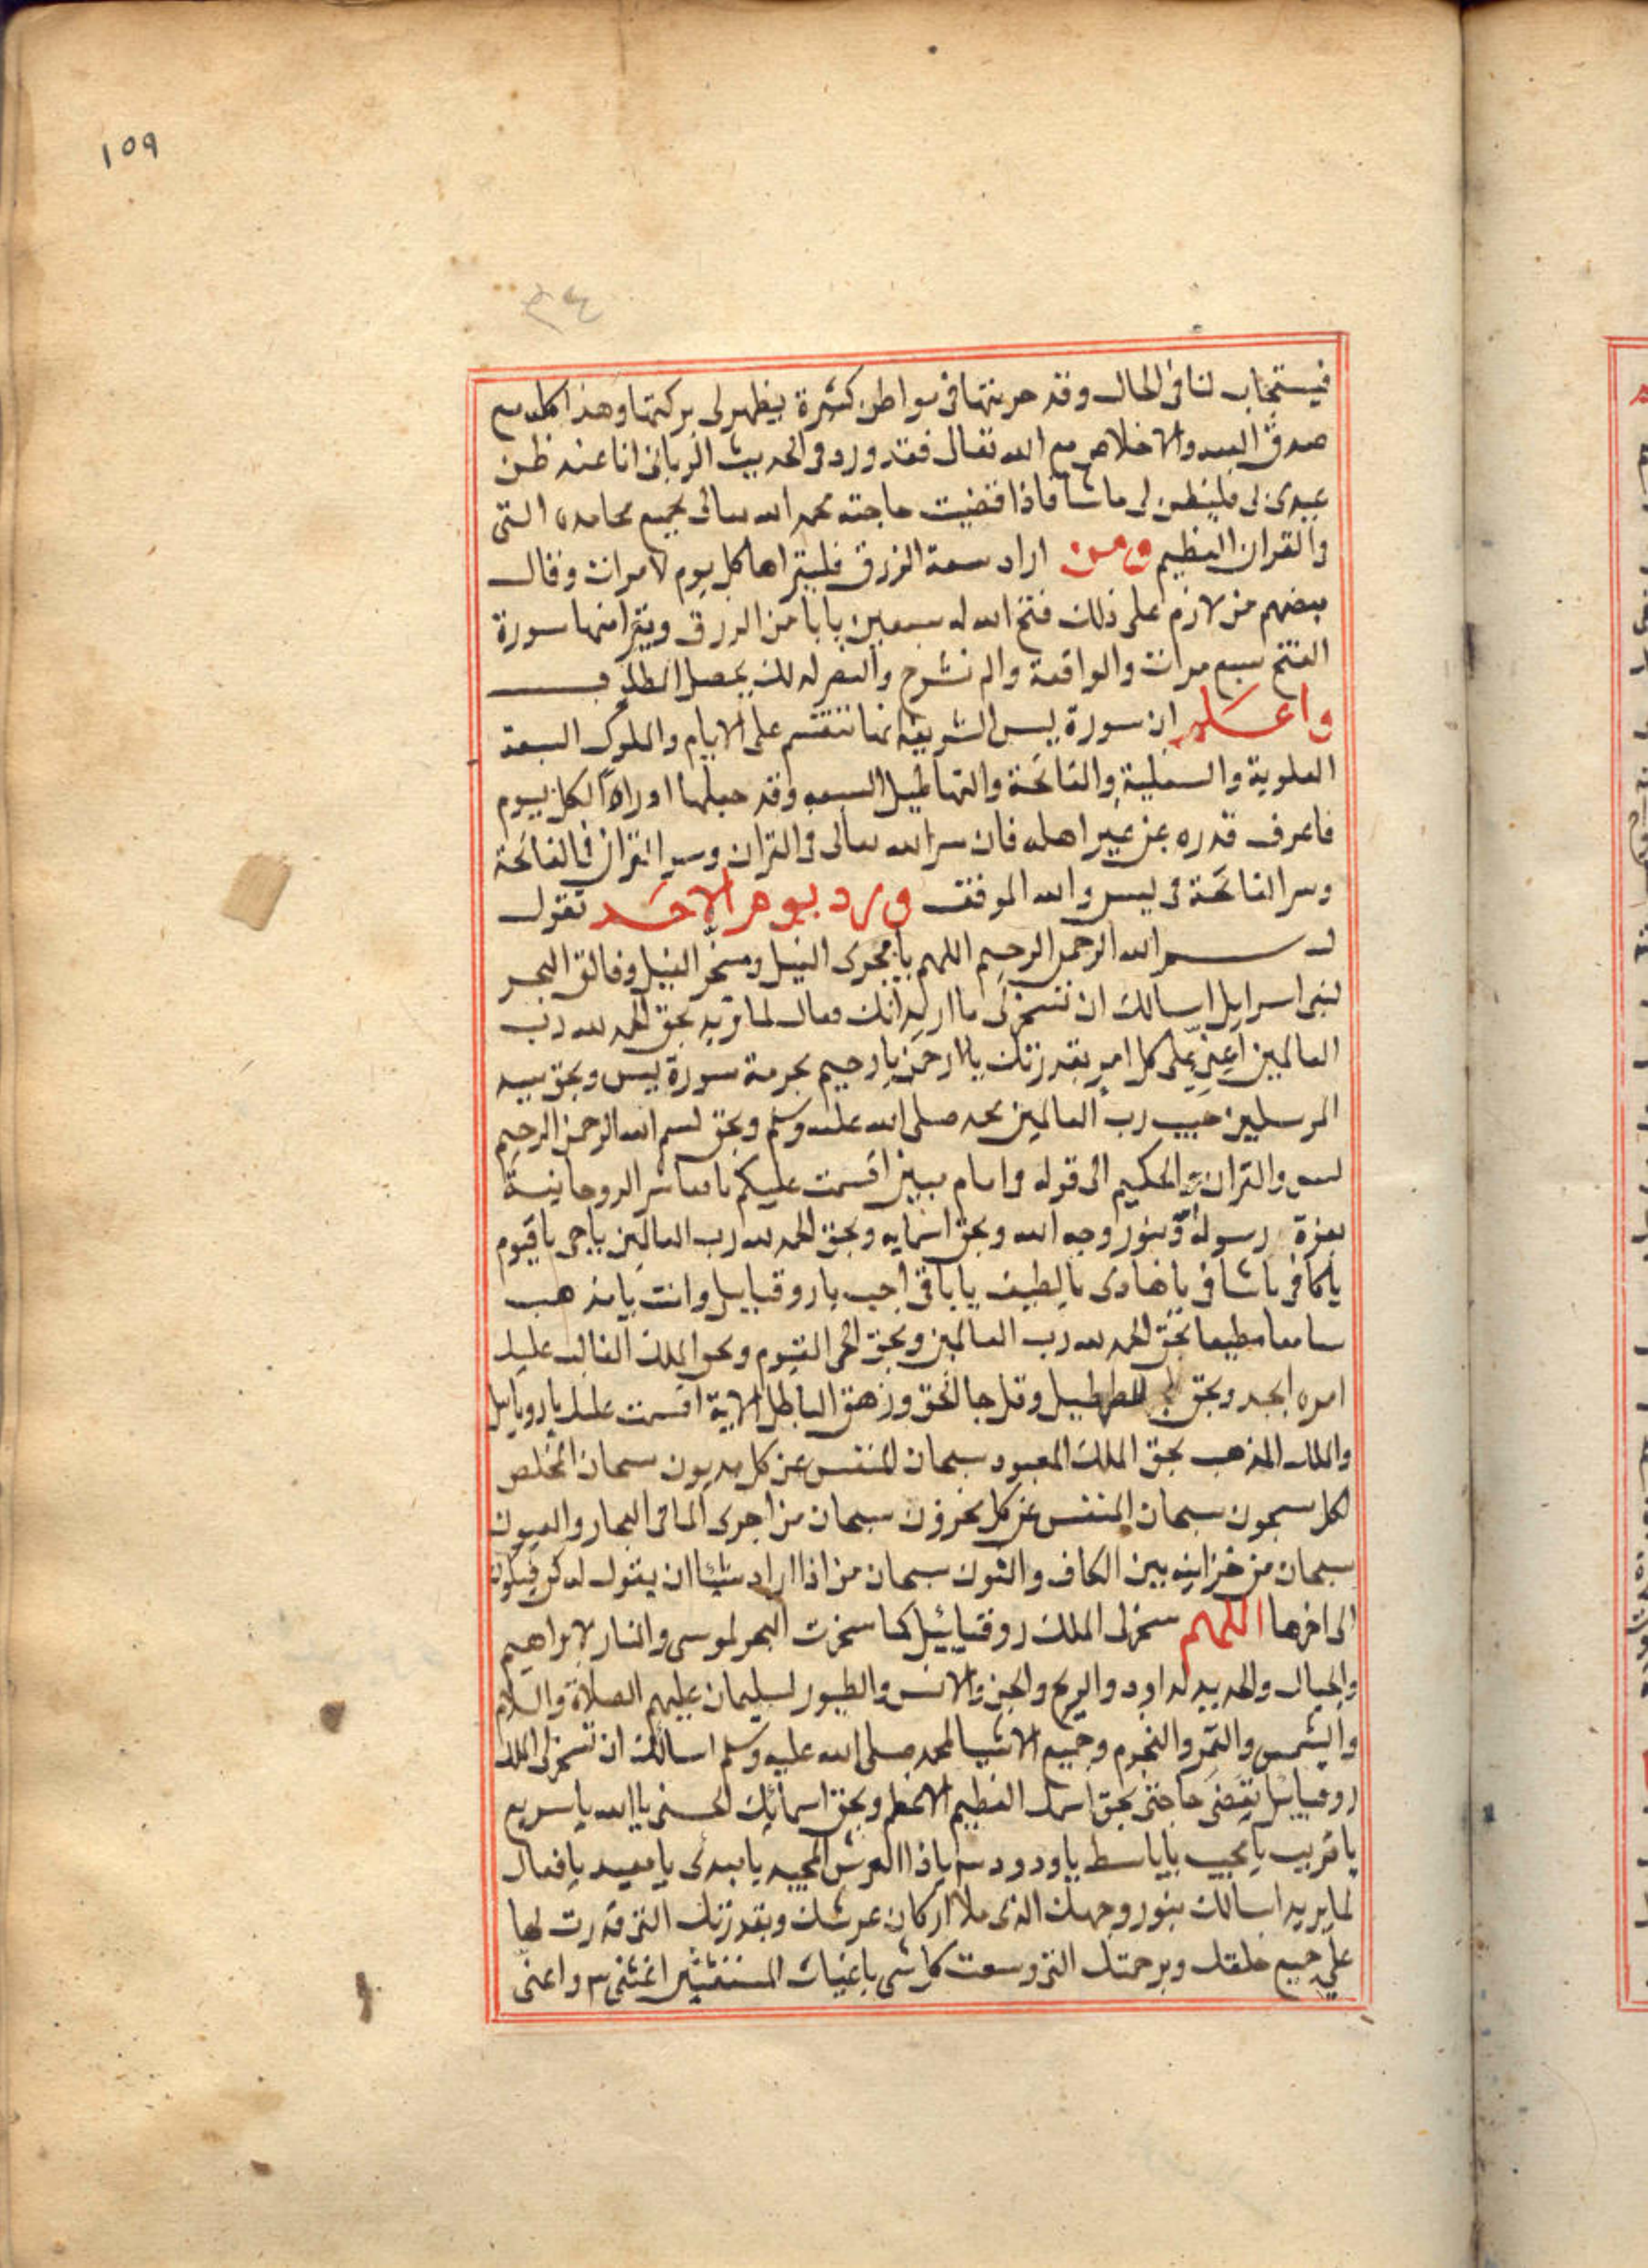 ١٥٩
٣٤
فيستجاب لنا فى الحال وقد جربتها فى مواطن كثيرة يظهر لى بركتها وهذا كله مع
صدق العبد والاخلاص مع الله تعالى فقد ورد فى الحديث الربانى انا عند ظن
عبدى بى فليظن بى ما شا فاذا قضيت حاجته يحمد الله تعالى بجميع محامده التى
والقران العظيم ومن اراد سعة الرزق فليقراها كل يوم مرات وقال
بعضهم من لازم على ذلك فتح الله له سبعين بابا من الرزق ويقرا منها سورة
الفتح سبع مرات والواقعة والم نشرح والنصر له لك يحصل المطلوب
واعلم ان سورة يس الشريفة تنقسم على الايام والملوك السبعة
العلوية والسفلية والفاتحة والتهاطيل السبعه وقد جعلها اورادا لكل يوم
فاعرف قدره عن غير اهله فان سر الله تعالى فى القران وسر القران فى الفاتحة
وسر الفاتحة فى يس والله الموفق ورد يوم الاحد تقول
بسم الله الرحمن الرحيم اللهم يا مجرى النيل ومسخر الفيل وفالق البحر
لبنى اسرايل اسالك ان تسخر لى ما اريد انك فعال لما تريد بحق الحمد لله رب
العالمين اعنى على كل امر بقدرتك يا رحمن يا رحيم بحرمة سورة يس وبحق سيد
المرسلين حبيب رب العالمين محمد صلى الله عليه وسلم وبحق بسم الله الرحمن الرحيم
يس والقران الحكيم الى قوله فى امام مبين اقسمت عليكم يا معاشر الروحانية
بعزة رسوله وبنور وجه الله وبحق اسمايه وبحق الحمد لله رب العالمين يا حى يا قيوم
يا كافى يا شافى يا هادى يا لطيف يا باقى اجب يا روقيايل وانت يا مذهب
سامعا مطيعا بحق الحمد لله رب العالمين وبحق الحى القيوم وبحق الملك الغالب عليك
امره ابجد وبحق للطهطيل وقل جا الحق وزهق الباطل الاية اقسمت عليك يا رويايل
والملك المذهب بحق الملك المعبود سبحان المنفس عن كل مديون سبحان المخلص
لكل مسجون سبحان المنفس عن كل محزون سبحان من اجرى الما فى البحار والعيون
سبحان من خزاينه بين الكاف والنون سبحان من اذا اراد شيئا ان يقول له كن فيكون
الى اخرها اللهم سخر لى الملك روقيائيل كما سخرت البحر لموسى والنار لابراهيم
والجبال والحديد لداود والريح والجن والانس والطيور لسليمان عليهم الصلاة والسلام
والشمس والقمر والنجوم وجميع الاشيا لمحمد صلى الله عليه وسلم اسالك ان تسخر لى الملك
روقيائيل يقضى حاجتى بحق اسمك العظيم الاعظم وبحق اسمائك الحسنى يا الله يا سريع
يا قريب يا مجيب يا باسط يا ودود ٣ يا ذا العرش المجيد يا مبدى يا معيد يا فعال
لما يريد اسالك بنور وجهك الذى ملا اركان عرشك وبقدرتك التى قدرت بها
على جميع خلقك وبرحمتك التى وسعت كل شى يا غياث المستغيثين اغثنى ٣ واعنى